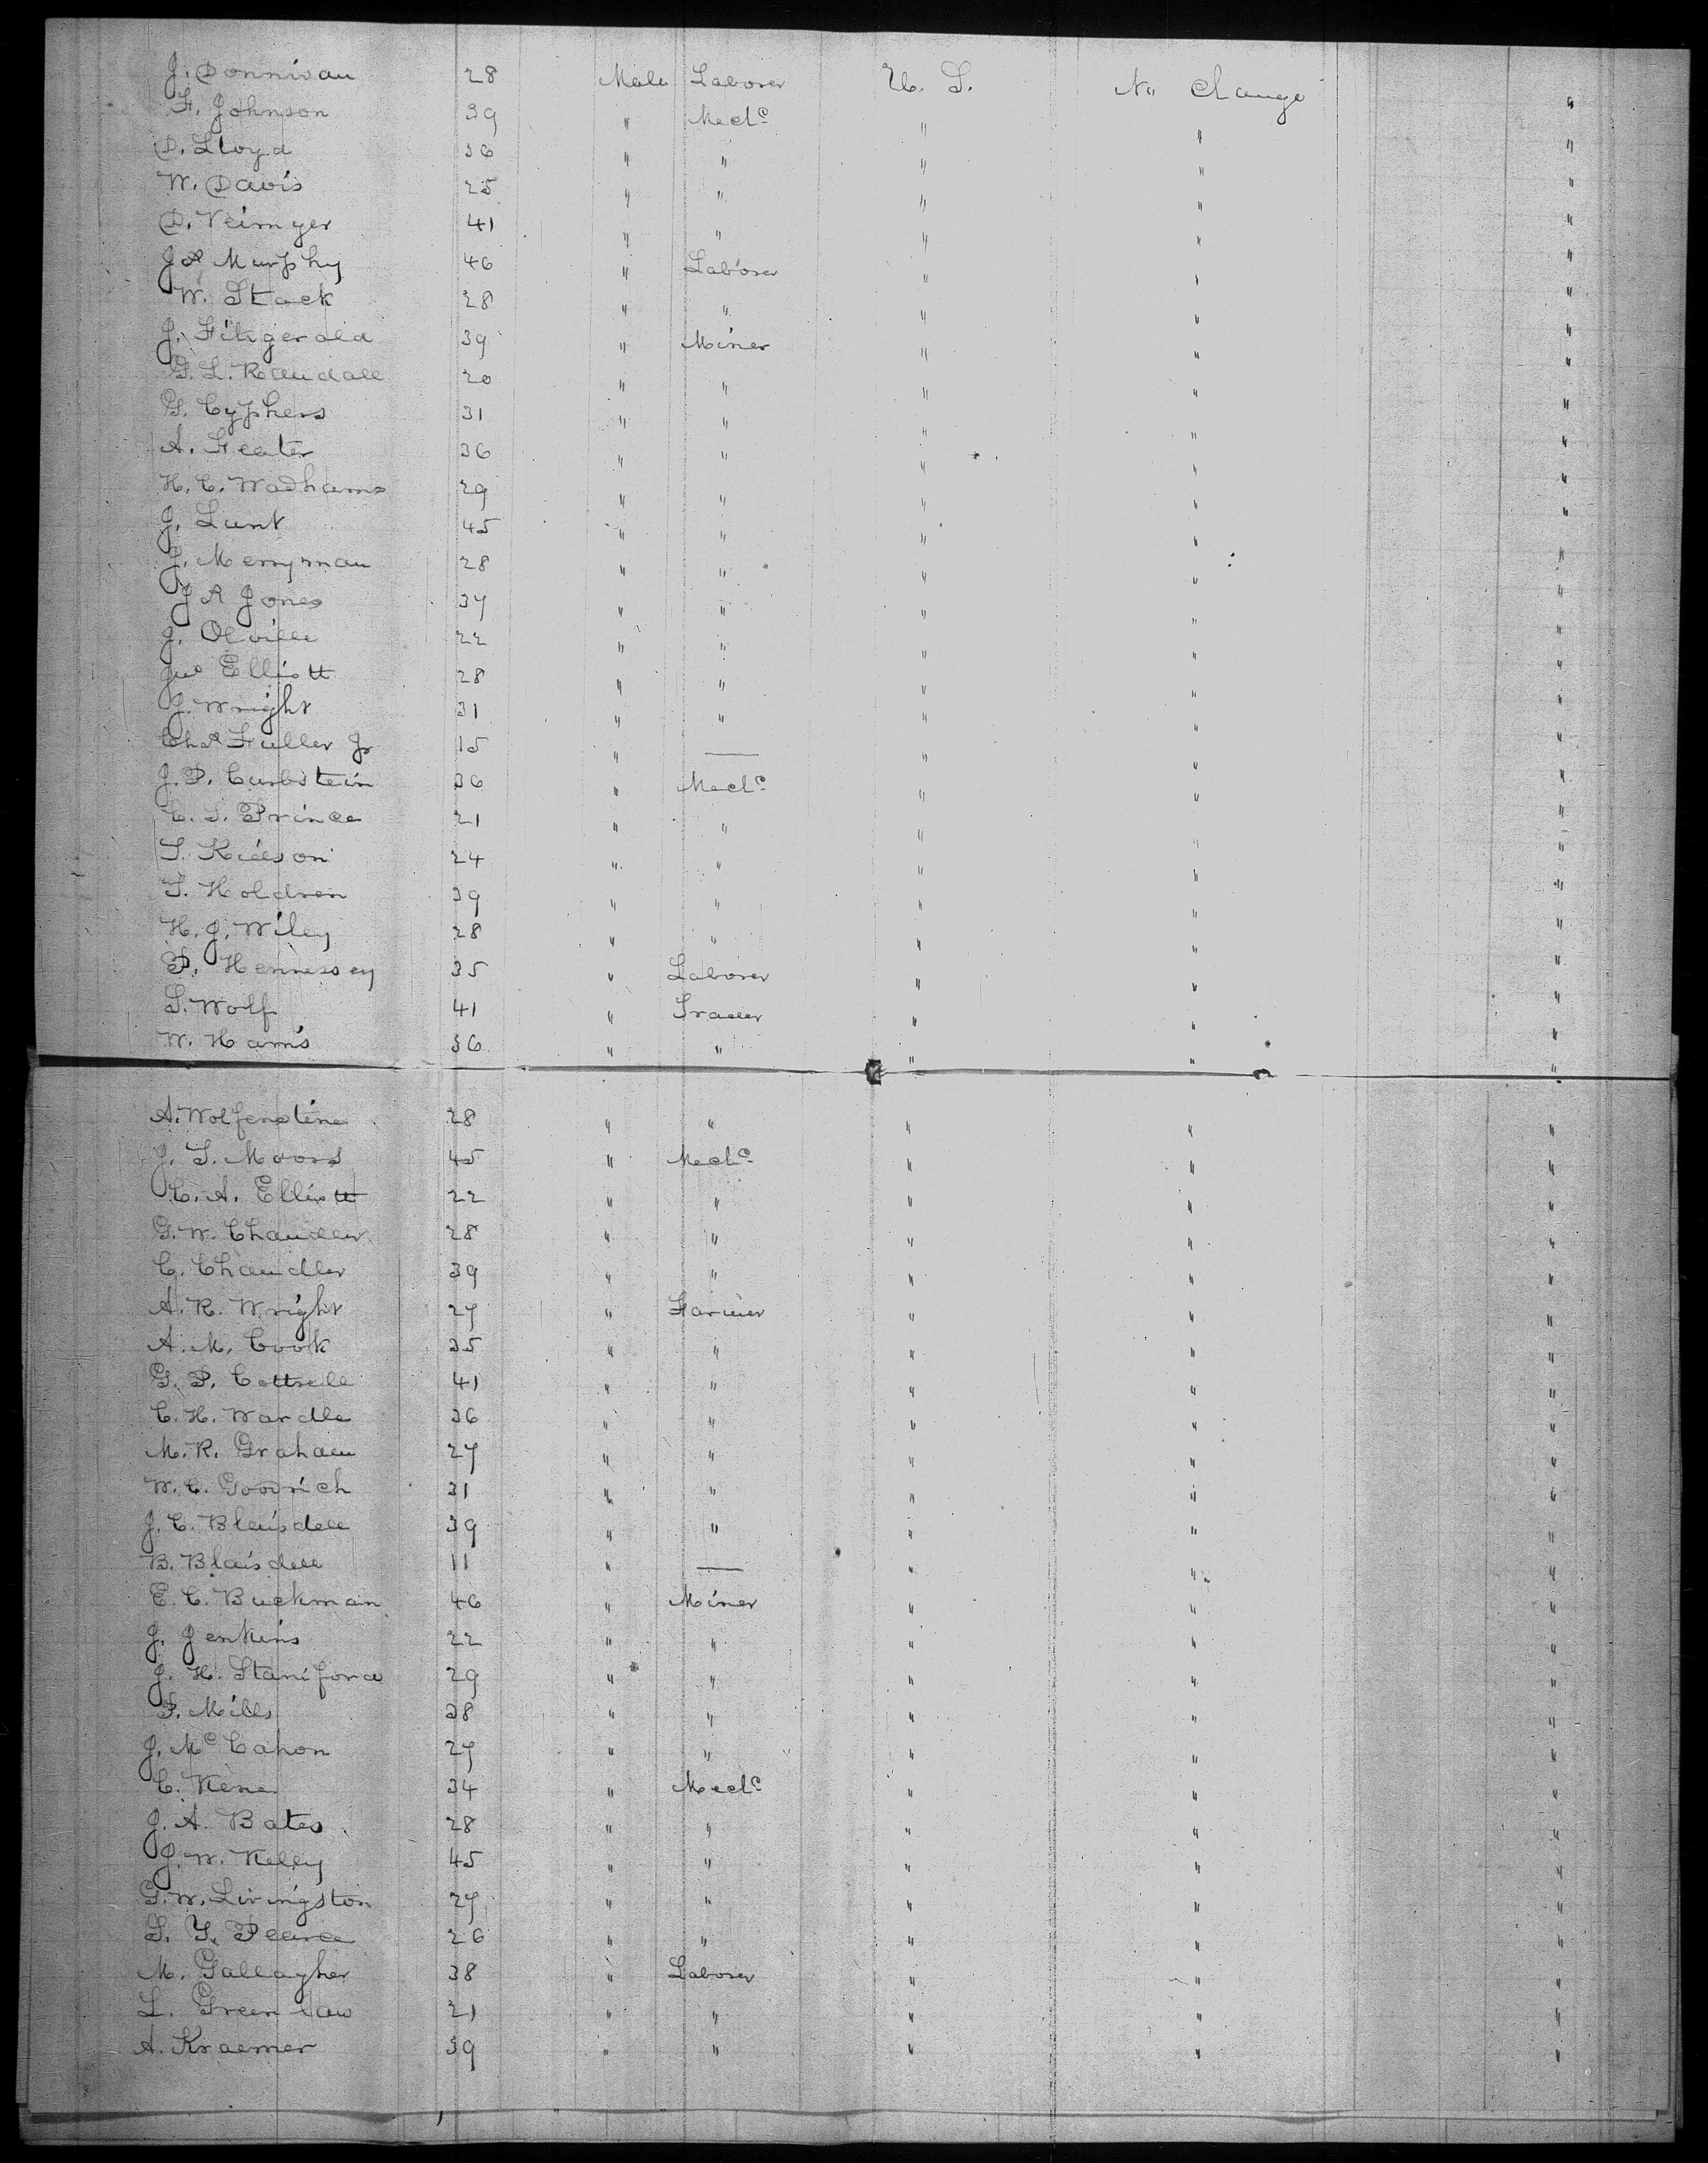 J. Donnivan 28 Male Laborer U. S. No Change "
F. Johnson 39 " Mech^c " " "
D. Lloyd 36 " " " " "
W. Davis 25 " " " " "
D. Veimyer 41 " " " " "
Ja^s Murphy 46 " Laborer " " "
W. Stack 28 " " " " "
J. Fitzgerald 39 " Miner " " "
G. L. Randall 20 " " " " "
G. Cyphers 31 " " " " "
A. Geater 36 " " " " "
H. C. Wadhams 29 " " " " "
J. Lunt 45 " " " " "
J. Merryman 28 " " " " "
J A Jones 37 " " " " "
J. Olville 22 " " " " "
Jno Elliott 28 " " " " "
J. Wright 31 " " " " "
Cha^s Fuller Jr 15 " — " " "
J. P. Curbstein 36 " Mech^c " " "
C. S. Prince 21 " " " " "
S. Kidson 24 " " " " "
T. Holdren 39 " " " " "
H. J. Wiley 28 " " " " "
P. Hennessey 35 " Laborer " " "
S. Wolf 41 " Trader " " "
W. Harris 36 " " " " "
A. Wolfenstine 28 " " " " "
J. S. Moors 45 " Mech^c " " "
C. A. Elliott 22 " " " " "
G. W. Chandler 28 " " " " "
C. Chandler 39 " " " " "
A. R. Wright 27 " Farmer " " "
A. M. Cook 35 " " " " "
G. P. Cottrell 41 " " " " "
C. H. Wardle 36 " " " " "
M. R. Graham 27 " " " " "
W. C. Goodrich 31 " " " " "
J. C. Blaisdell 39 " " " " "
B. Blaisdell 11 " — " " "
E. C. Buckman 46 " Miner " " "
J. Jenkins 22 " " " " "
J. H. Staniford 29 " " " " "
P. Mills 38 " " " " "
J. M^c Cahon 27 " " " " "
C. Kene 34 " Mech^c " " "
J. A. Bates 28 " " " " "
J. W. Kelly 45 " " " " "
G. W. Livingston 27 " " " " "
S. Y. Pearce 26 " " " " "
M. Gallagher 38 " Laborer " " "
L. Greenlaw 21 " " " " "
A. Kraemer 39 " " " " "